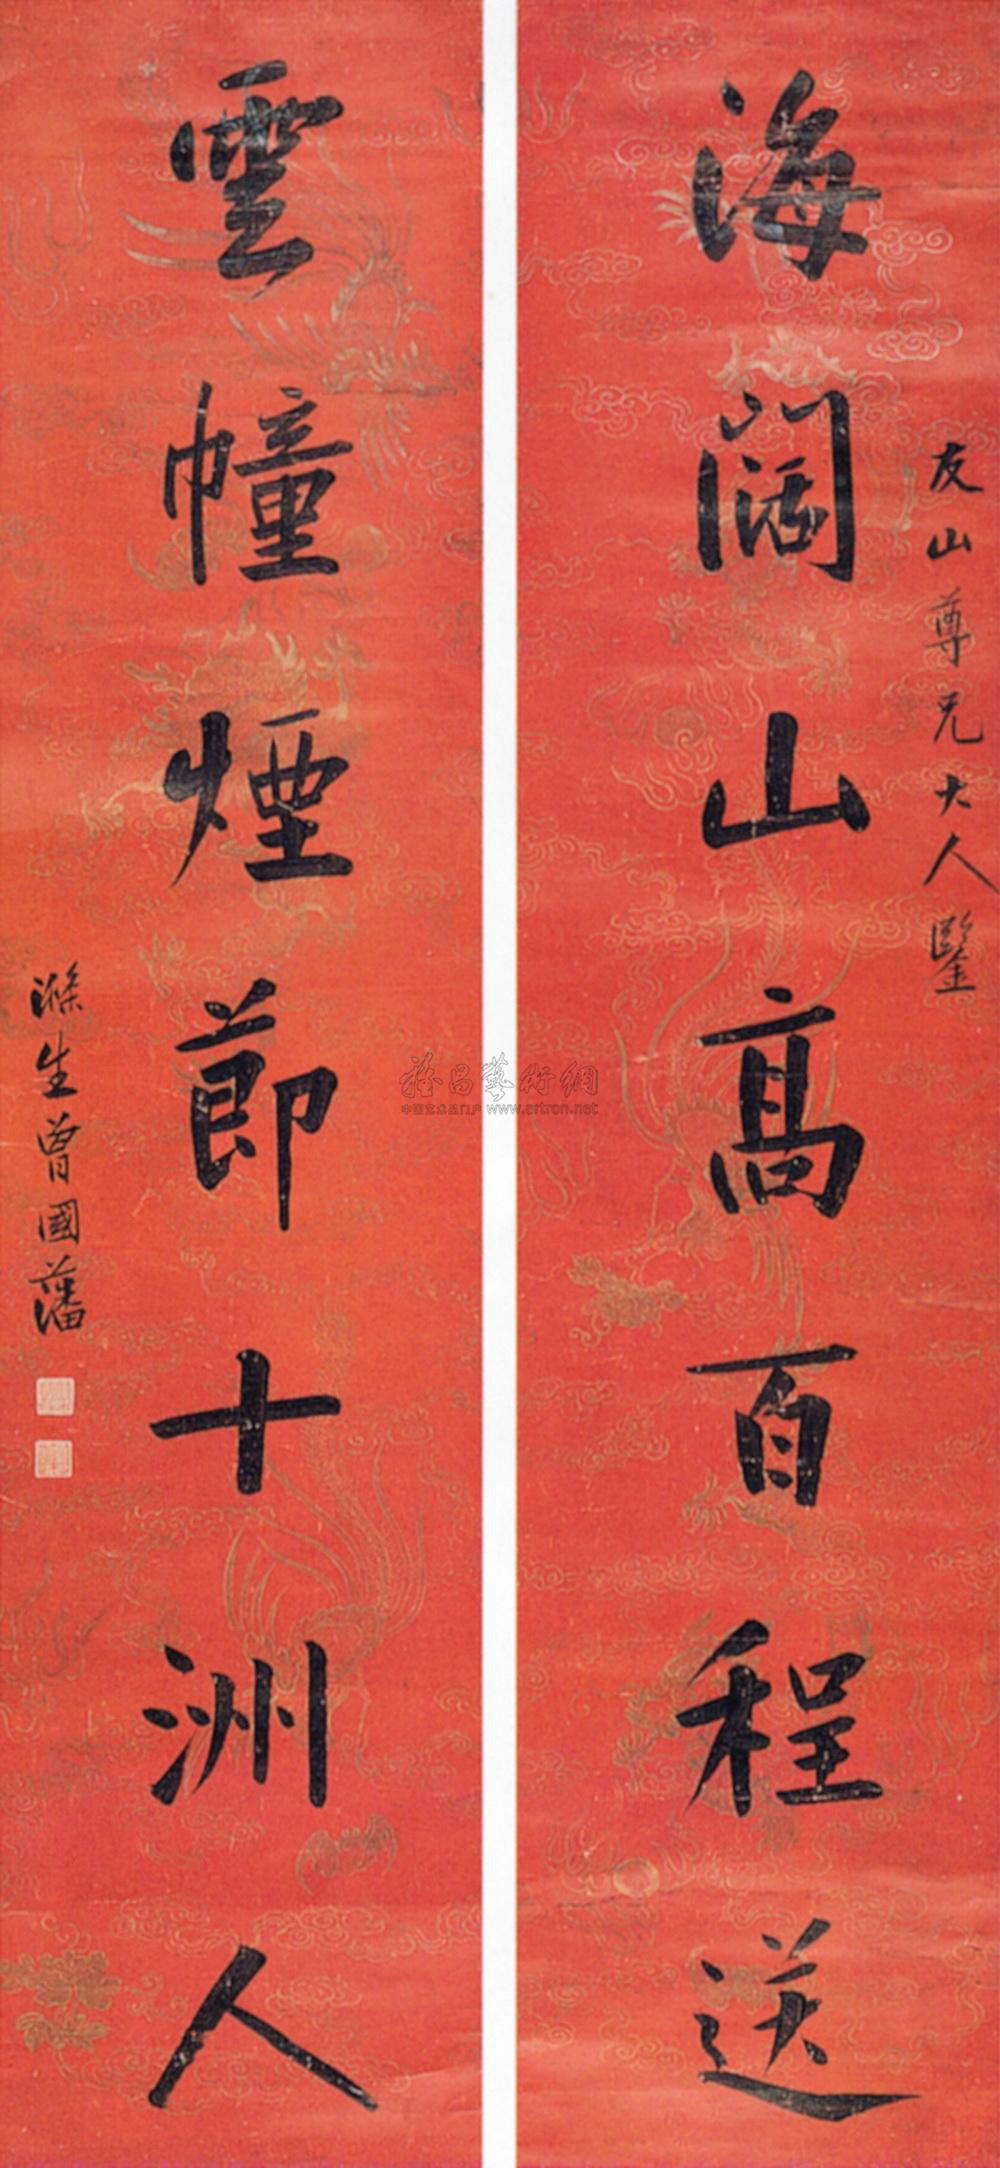 友山尊兄大人鑒
海闊山高百程送
雲幢煙節十洲人
滌生曾國藩
雅昌藝術網
中国艺术品门户 www.artron.net